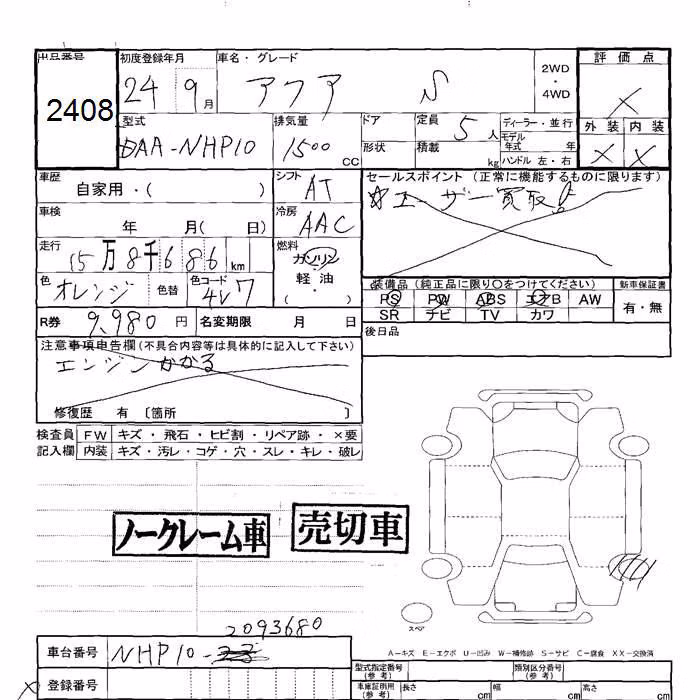 出品番号
2408
初度登録年月
24 9月
車名・グレード
アクア S
2WD
・
4WD
評価点
×
外装 内装
× ×
型式
DAA-NHP10
排気量
1500 cc
ドア
形状
定員 5人
積載 kg
ディーラー・並行
モデル
年式 年
ハンドル 左・右
車歴
自家用・( )
シフト
AT
車検
年 月( 日)
冷房
AAC
走行
15万8千686 km
燃料
ガソリン
軽油
( ・ )
色
オレンジ
色替
色コード
4V7
R券 9,980 円
名変期限 月 日
セールスポイント (正常に機能するものに限ります)
ユーザー買取!
装備品(純正品に限り○をつけてください)
PS PW ABS エアB AW
SR ナビ TV カワ
新車保証書
有・無
後日品
注意事項申告欄(不具合内容等は具体的に記入して下さい)
エンジンかかる
修復歴 有 〔箇所 〕
検査員 FW キズ・飛石・ヒビ割・リペア跡・×要
記入欄 内装 キズ・汚レ・コゲ・穴・スレ・キレ・破レ
ノークレーム車
売切車
スペア
A-キズ E-エクボ U-凹み W-補修跡 S-サビ C-腐食 XX-交換済
車台番号
NHP10-
2093680
× 登録番号
型式指定番号
(参考)
類別区分番号
(参考)
車庫証明用
(参考)
長さ cm
幅 cm
高さ cm